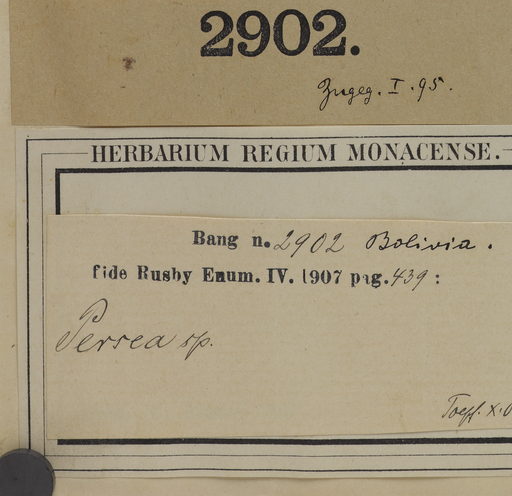 2902.
Zugeg. I. 95.
HERBARIUM REGIUM MONACENSE.
Bang n. 2902 Bolivia.
fide Rusby Enum. IV. 1907 pag. 439 :
Persea sp.